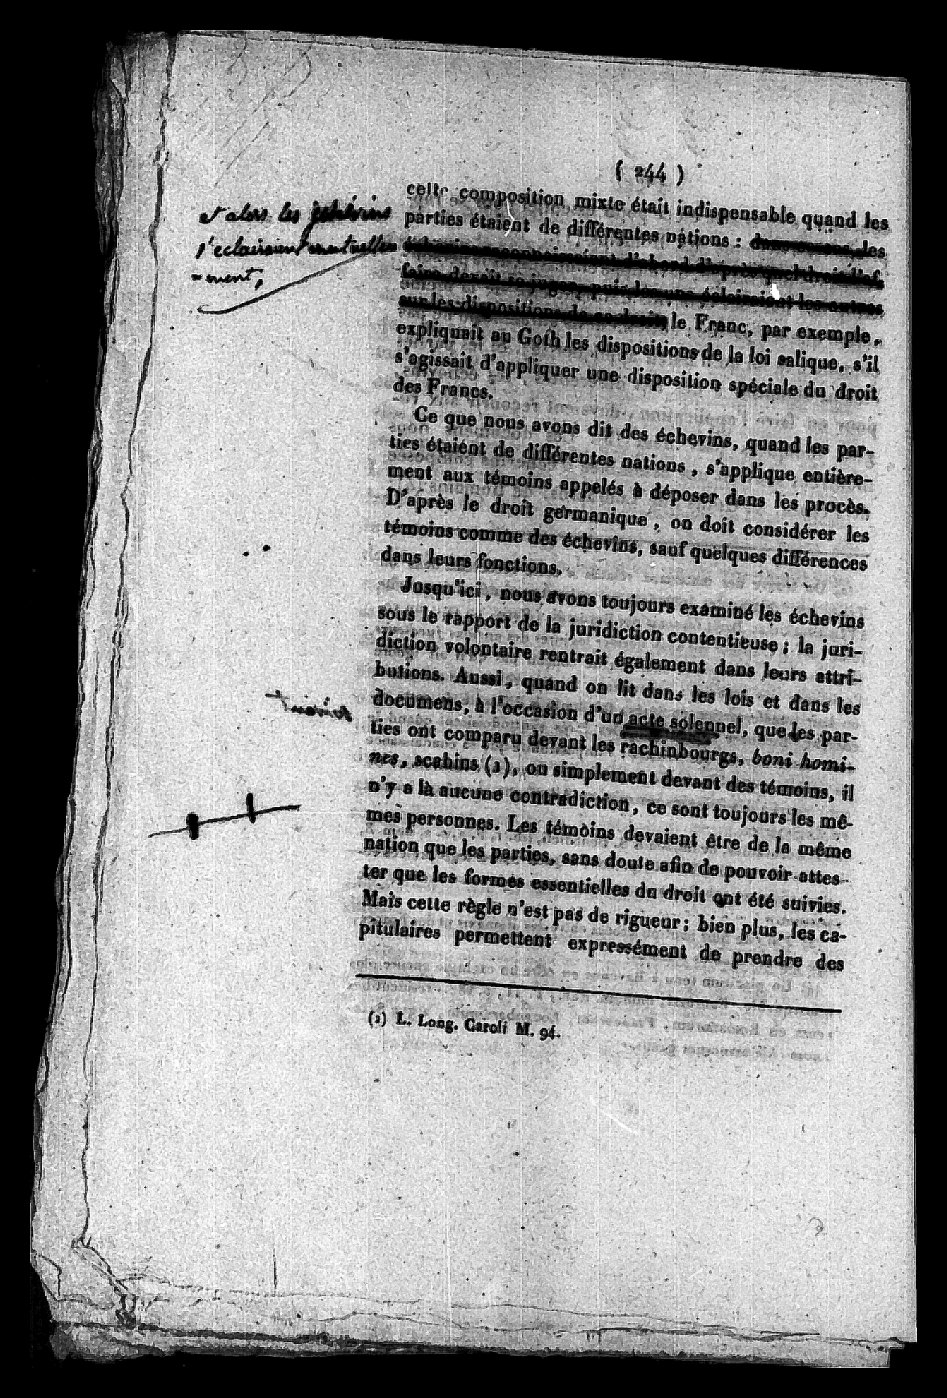 ( 244 )
cette composition mixte était indispensable quand les
parties étaient de différentes nations : les
le Franc, par exemple,
expliquait au Goth les dispositions de la loi salique, s'il
s'agissait d'appliquer une disposition spéciale du droit
des Francs.
Ce que nous avons dit des échevins, quand les par-
ties étaient de différentes nations, s'applique entière-
ment aux témoins appelés à déposer dans les procès.
D'après le droit germanique, on doit considérer les
témoins comme des échevins, sauf quelques différences
dans leurs fonctions.
Jusqu'ici, nous avons toujours examiné les échevins
sous le rapport de la juridiction contentieuse ; la juri-
diction volontaire rentrait également dans leurs attri-
butions. Aussi, quand on lit dans les lois et dans les
documens, à l'occasion d'un acte solennel, que les par-
ties ont comparu devant les rachinbourgs, boni homi-
nes, scabins (1), ou simplement devant des témoins, il
n'y a là aucune contradiction, ce sont toujours les mê-
mes personnes. Les témoins devaient être de la même
nation que les parties, sans doute afin de pouvoir attes-
ter que les formes essentielles du droit ont été suivies.
Mais cette règle n'est pas de rigueur ; bien plus, les ca-
pitulaires permettent expressément de prendre des
(1) L. Long. Caroli M. 94.
et alors les échévins
s'eclairaient mutuelle
=ment,